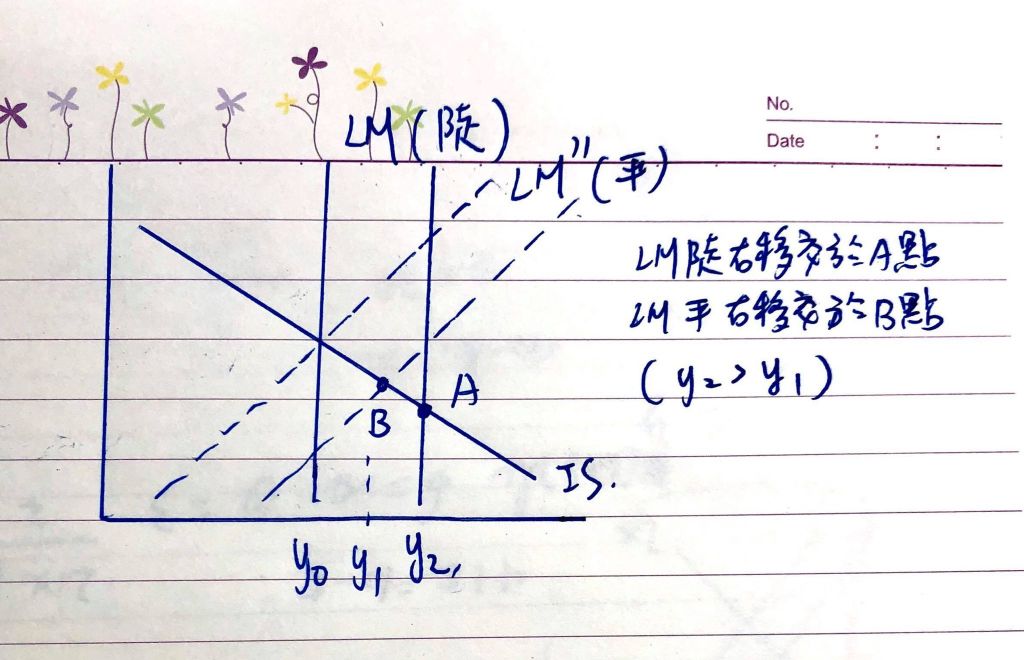 No.
Date : :
LM (陡)
LM'' (平)
LM陡右移交於A點
LM平右移交於B點
(y₂ > y₁)
A
B
IS.
y₀ y₁ y₂,